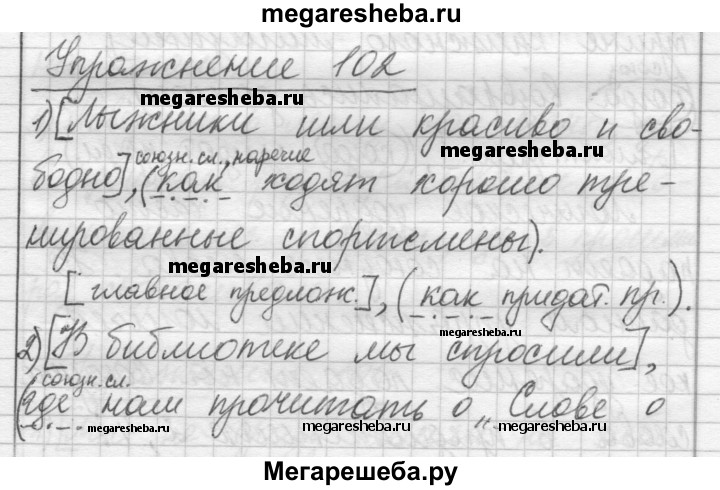 megaresheba.ru
Упражнение 102
megaresheba.ru
1) [Лыжники шли красиво и сво-
megaresheba.ru
союзн. сл., наречие
бодно], (как ходят хорошо тре-
нированные спортсмены).
megaresheba.ru
[главное предлож.], (как придат. пр.).
megaresheba.ru
2) [В библиотеке мы спросили],
союзн. сл.
(где нам прочитать о „Слове о
megaresheba.ru megaresheba.ru megaresheba.ru
Мегарешеба.ру